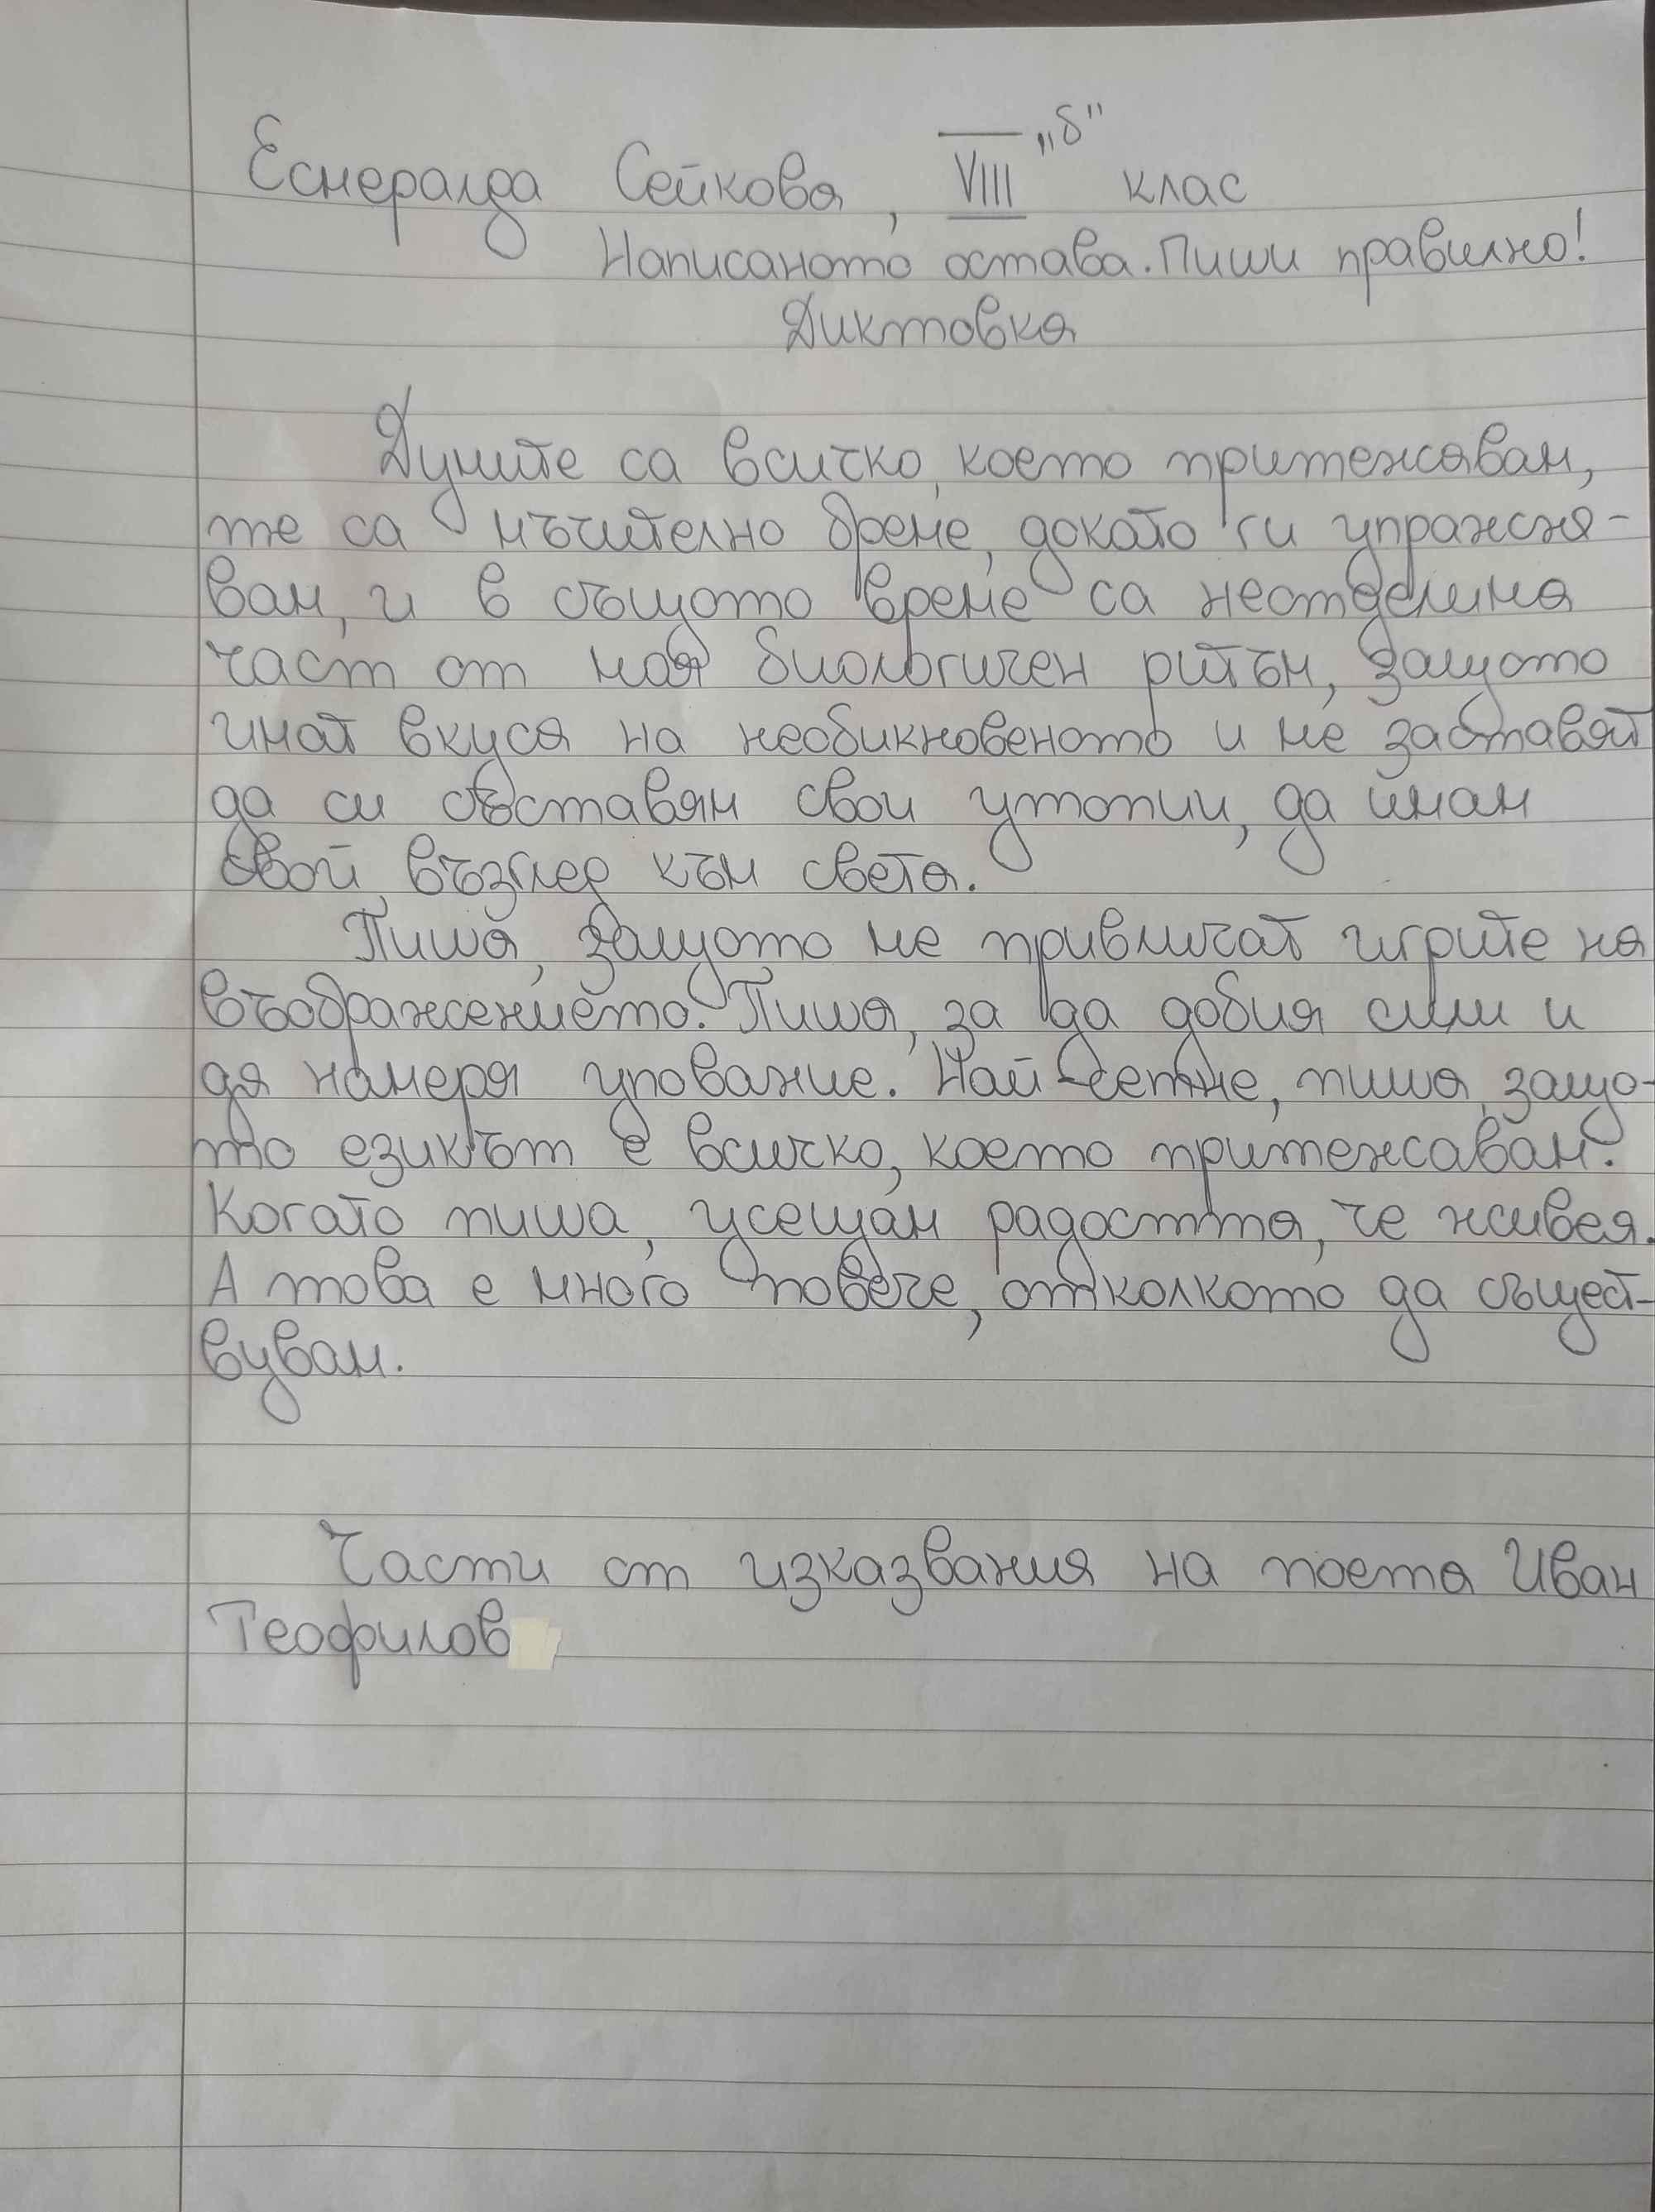 Есмералда Сейкова, VIII „б" клас
Написаното остава. Пиши правилно!
Диктовка
Думите са всичко, което притежавам,
те са мъчително бреме, докато ги упражня-
вам, и в същото време са неотделима
част от моя биологичен ритъм, защото
имат вкуся на необикновеното и ме заставят
да си съставям свои утопии, да имам
свой възглед към света.
Пиша, защото ме привличат игрите на
въображението. Пиша, за да добия сили и
да намеря упование. Най-сетне, пиша, защо-
то езикът е всичко, което притежавам.
Когато пиша, усещам радостта, че живея.
А това е много повече, отколкото да същест-
вувам.
Части от изказвания на поета Иван
Теофилов